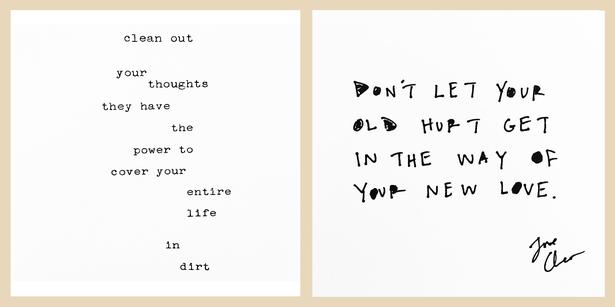 clean out
your
thoughts
they have
the
power to
cover your
entire
life
in
dirt
DON'T LET YOUR
OLD HURT GET
IN THE WAY OF
YOUR NEW LOVE.
love
Cleo